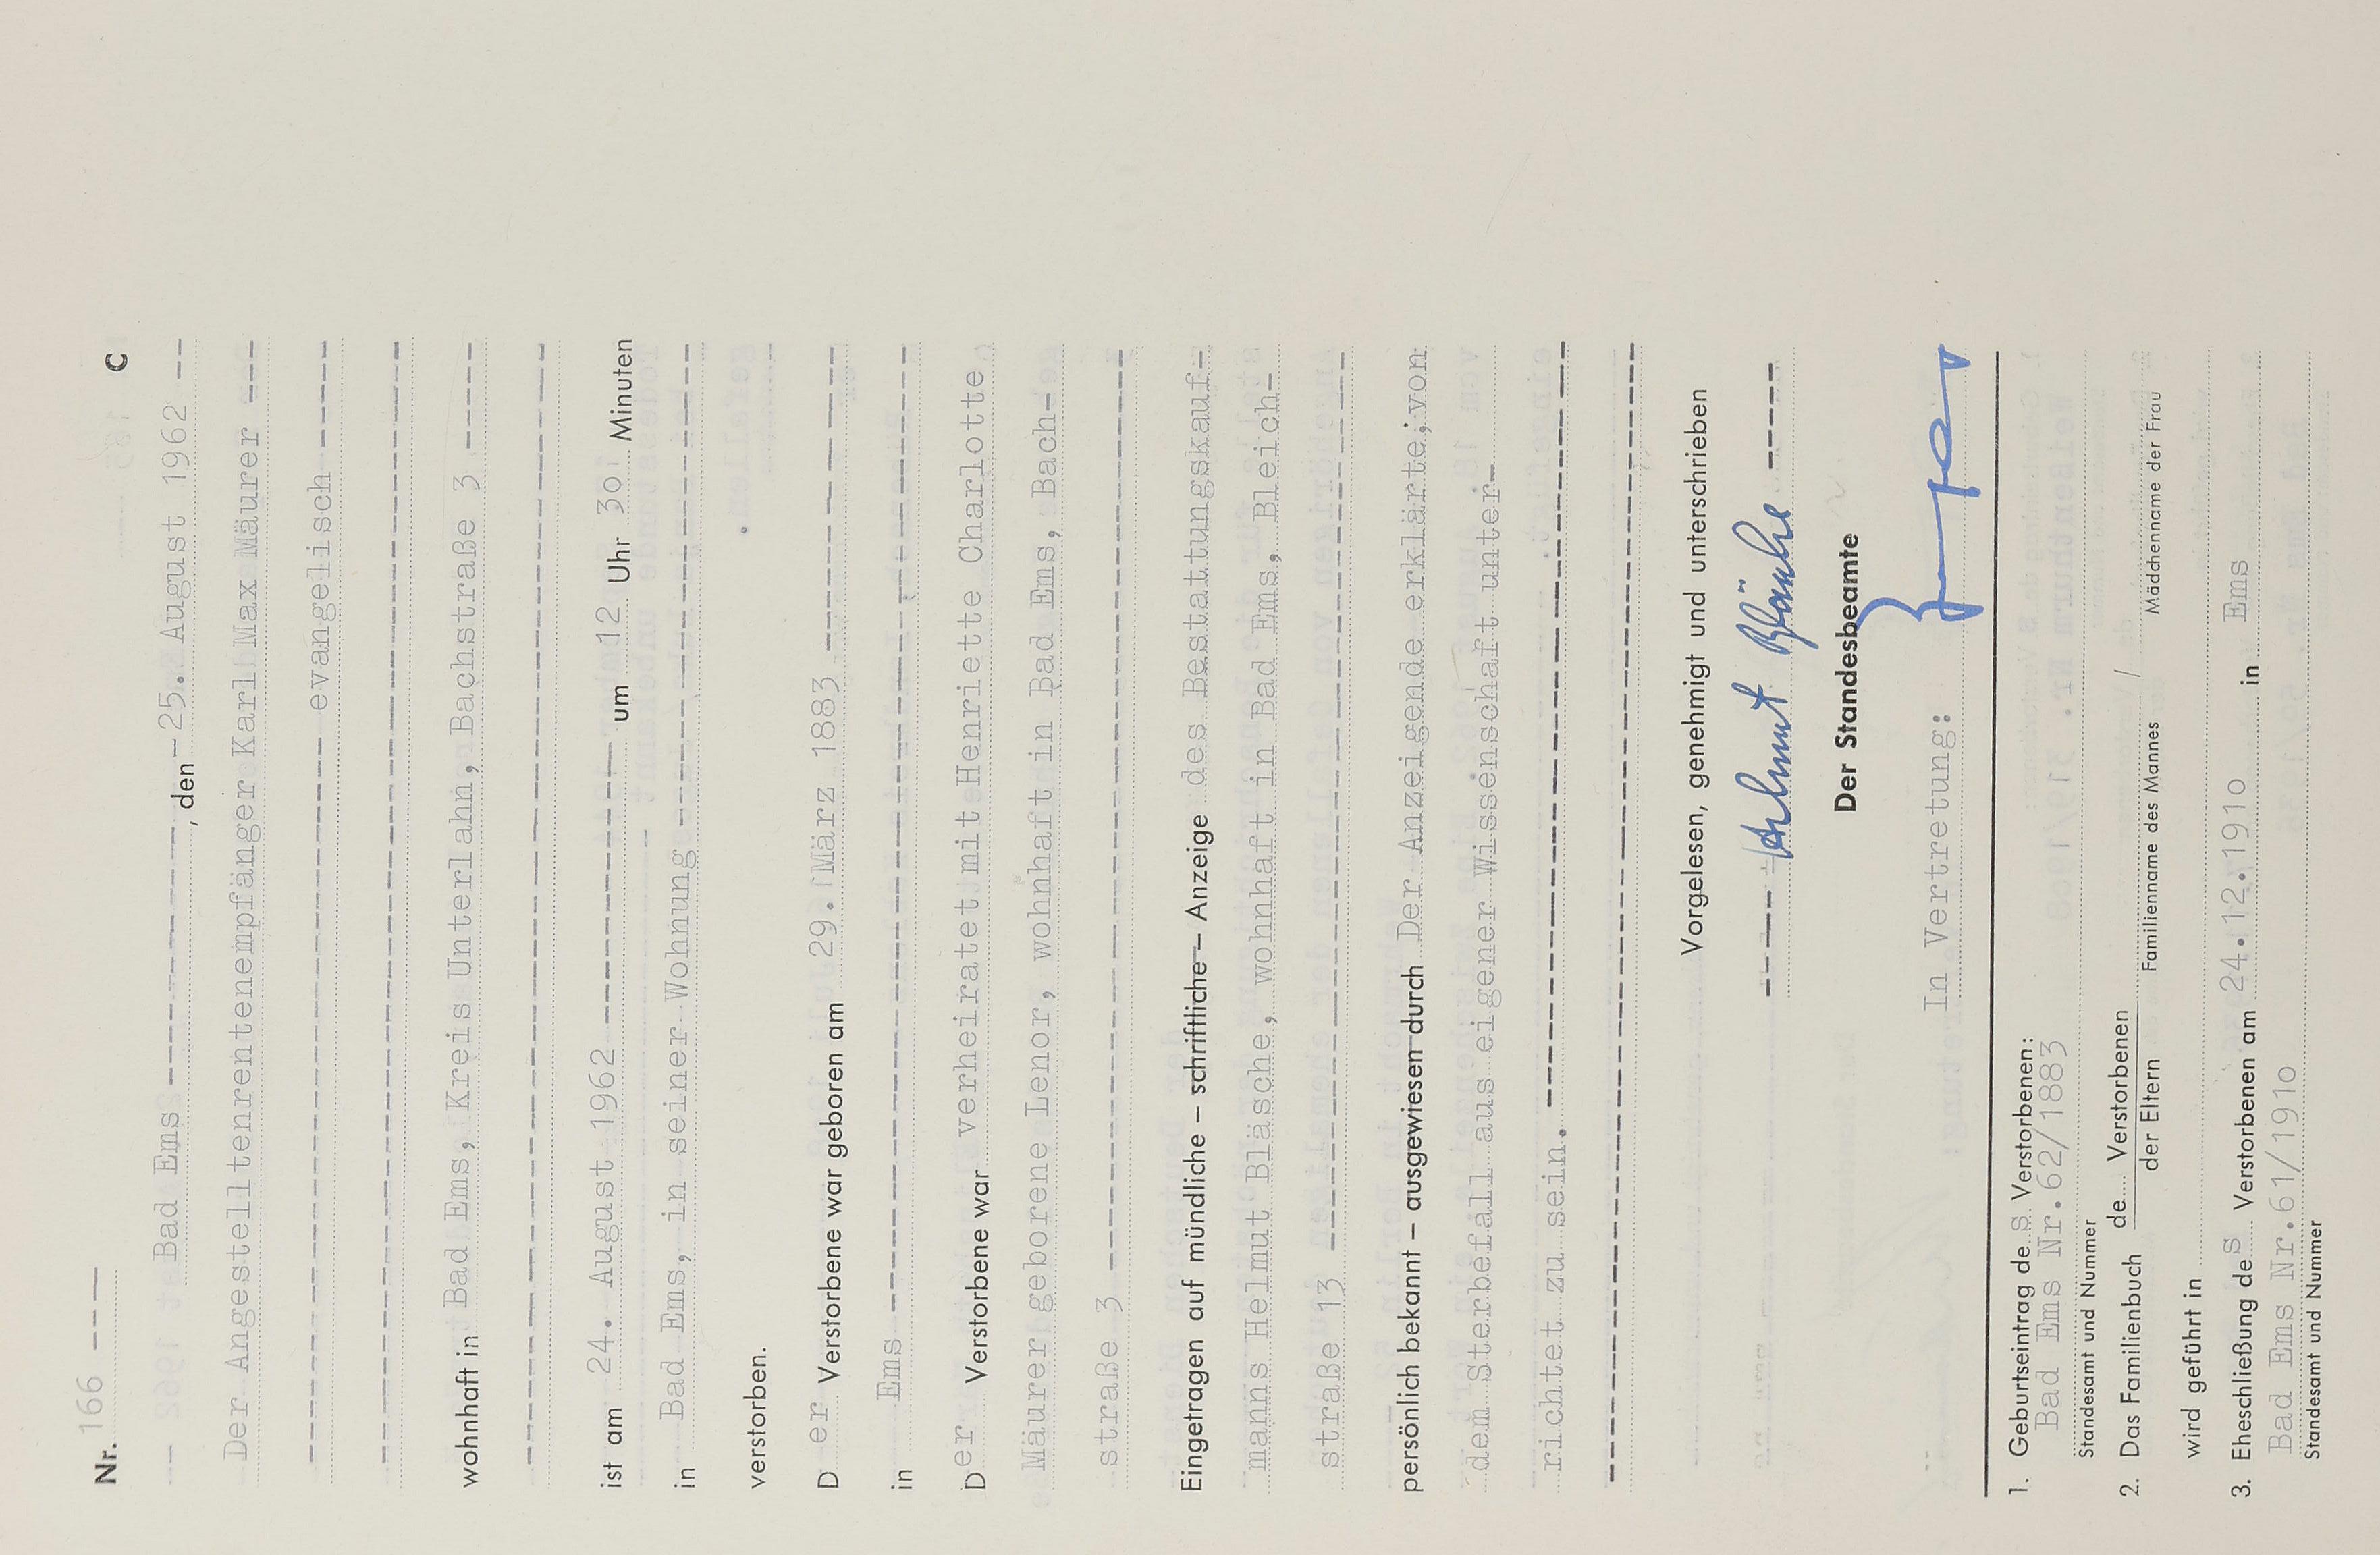 Nr. 166 --- C
Bad Ems ----------, den -25. August 1962 --
Der Angestelltenrentenempfänger Karl Max Mäurer ---
---------- evangelisch -----
----------
wohnhaft in Bad Ems, Kreis Unterlahn, Bachstraße 3 -----
----------
ist am 24. August 1962 ---------- um 12 Uhr 30 Minuten
in Bad Ems, in seiner Wohnung ----------
verstorben.
Der Verstorbene war geboren am 29. März 1883 ----------
in Ems ----------
Der Verstorbene war verheiratet mit Henriette Charlotte
Mäurer geborene Lenor, wohnhaft in Bad Ems, Bach-
straße 3 ----------
Eingetragen auf mündliche – schriftliche – Anzeige des Bestattungskauf-
manns Helmut Bläsche, wohnhaft in Bad Ems, Bleich-
straße 13 ----------
persönlich bekannt – ausgewiesen durch Der Anzeigende erklärte, von
dem Sterbefall aus eigener Wissenschaft unter-
richtet zu sein. ----------
----------
Vorgelesen, genehmigt und unterschrieben
---- Helmut Bläsche -----
Der Standesbeamte
In Vertretung:
1. Geburtseintrag des Verstorbenen:
Bad Ems Nr.62/1883
Standesamt und Nummer
2. Das Familienbuch de.... Verstorbenen /
der Eltern Familienname des Mannes Mädchenname der Frau
wird geführt in
3. Eheschließung des Verstorbenen am 24.12.1910 in Ems
Bad Ems Nr.61/1910
Standesamt und Nummer